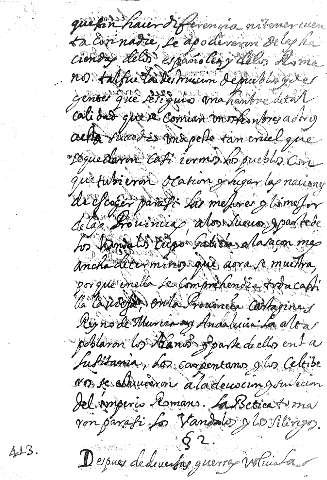 que sin hacer diferencia ni tener cuen
ta con nadie, se apoderaron de las ha
ciendas de los españoles y de los Roma
nos tal fue la destrucion de pueblos y de
gentes que se siguio una hambre de tal
calidad que se comian unos hombres a otros
a esta sucedio una peste tan cruel que
se quedaron casi iermos los pueblos con
que tubieron ocation y lugar las naciones
de escojer para si las mejores y lo mejor
de las Provincias a los suevos y parte de
los Vandalos cupo galicia a la sazon mas
ancha de terminos que aora se muestra
porque en ella se comprehendia toda casti
lla la vieja en la Provincia Cartaginesa
Reyno de Murcia y Andalucia la alta
poblaron los Alanos y parte de ellos en la
Lusitania, los Carpentanos y los Celtibe
ros se estuvieron a la devocion y sujecion
del imperio Romano. La Betica toma
ron para si los Vandalos y los Silingos.
§ 2.
413. Despues de diversas guerras Voluieba